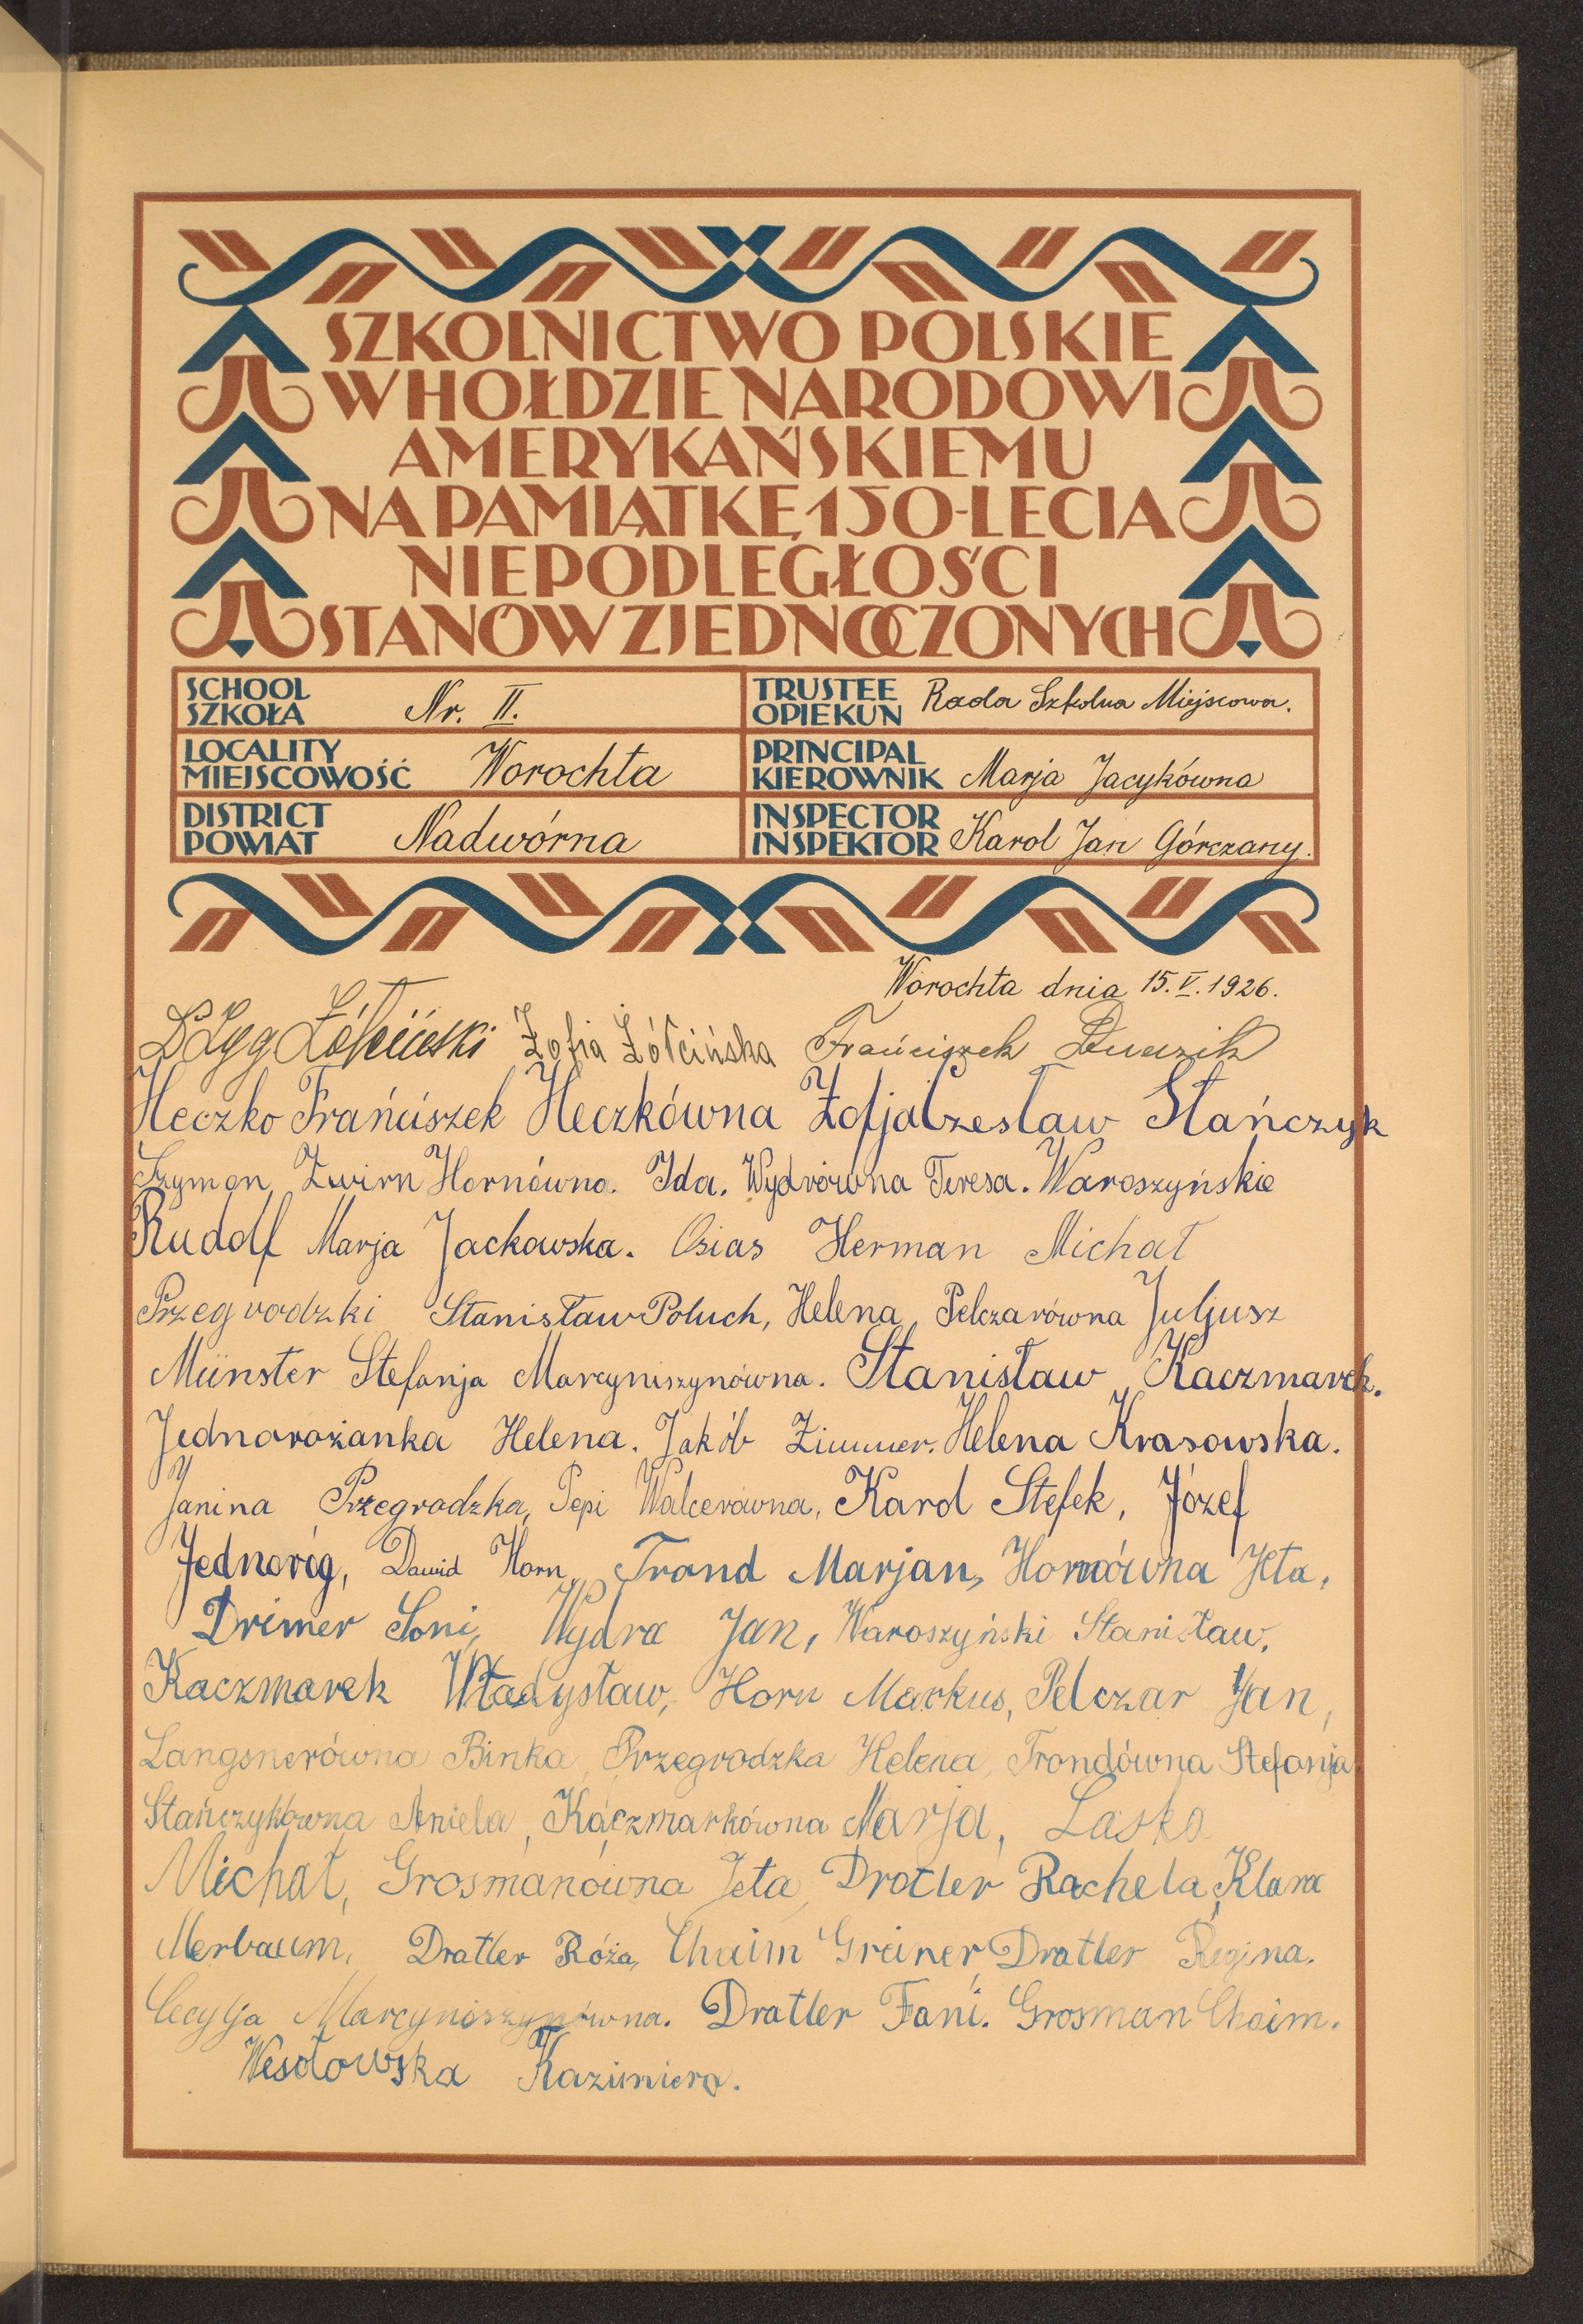 SZKOLNICTWO POLSKIE
W HOŁDZIE NARODOWI
AMERYKAŃSKIEMU
NA PAMIĄTKĘ 150-LECIA
NIEPODLEGŁOŚCI
STANÓW ZJEDNOCZONYCH
SCHOOL
SZKOŁA Nr. II.
TRUSTEE
OPIEKUN Rada Szkolna Miejscowa.
LOCALITY
MIEJSCOWOŚĆ Worochta
PRINCIPAL
KIEROWNIK Marja Jacykówna
DISTRICT
POWIAT Nadwórna
INSPECTOR
INSPEKTOR Karol Jan Górczany.
Worochta dnia 15.V.1926.
Zofia Żółcińska Frańciszek
Heczko Frańciszek Heczkówna Zofja Czesław Stańczyk
Szymon Zwirn Hornówna. Ida. Wydrówna Teresa. Waroszyńskie
Rudolf Marja Jackowska. Osias Herman Michał
Przegrodzki Stanisław Poluch, Helena Pelczarówna Juljusz
Münster Stefanja Marcyniszynówna. Stanisław Kaczmarek.
Jednorożanka Helena. Jakób Zimmer. Helena Krasowska.
Janina Przegrodzka, Pepi Walcerówna, Karol Stefek, Józef
Jednoróg, Dawid Horn, Trond Marjan, Hornówna Jeta,
Drimer Soni, Wydra Jan, Waroszyński Stanisław,
Kaczmarek Władysław, Horn Markus, Pelczar Jan,
Langsnerówna Binka, Przegrodzka Helena, Trondówna Stefanja
Stańczykówna Aniela, Kaczmarkówna Marja, Lasko
Michał, Grosmanówna Jeta, Dratler Rachela, Klara
Merbaum, Dratler Róża, Chaim Greiner Dratler Regina.
Cecylja Marcyniszynówna. Dratler Fani. Grosman Chaim.
Wesołowska Kazimiera.